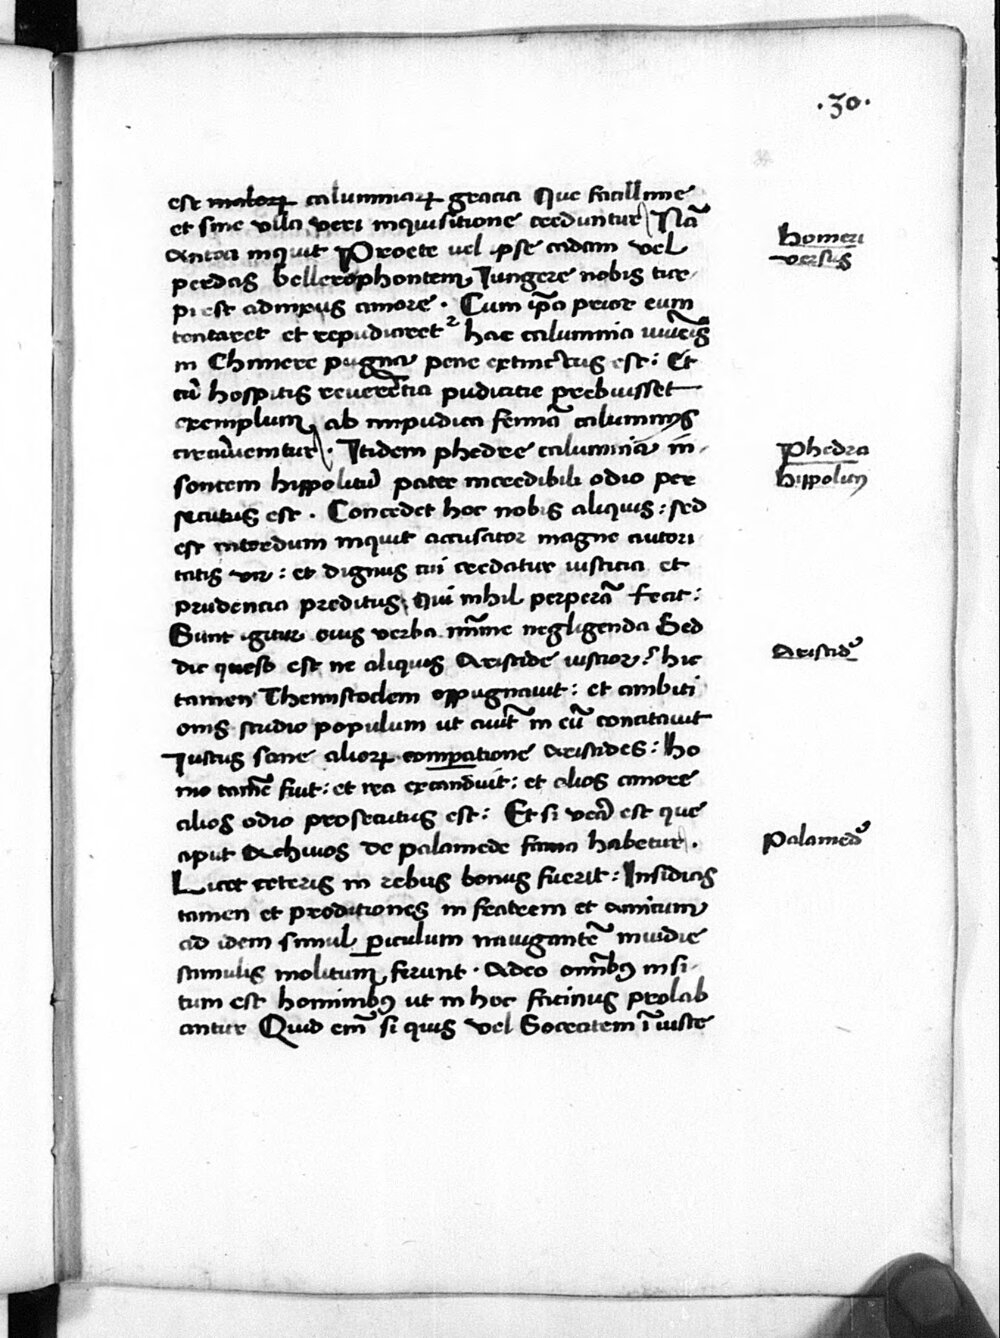 .30.
est maloꝝ calumniaꝝ gracia Que facillime
et sine ulla veri inquisitione creduntur Nā
Antea inquit Proete vel ipse cadam vel
perdas bellerophontem Iungere nobis turpi
pi est admixus amore. Cum ip̄a prior eum
tentaret et repudiaret² hac calumnia iuuēis
in Chimere pugna pene extinctus est: Et
cū hospitis reuerētia pudicitie prebuisset
exemplum ab impudica femīa calumniis
circūuenitur. Itidem phedre calumnia in-
sontem hippolitū pater incredibili odio per
secutus est. Concedet hoc nobis aliquis: sed
est interdum inquit accusator magne autori
tatis vir: et dignus cui credatur iusticia et
prudencia preditus, Qui nihil perperā fecit:
Sunt igitur eius verba mīme negligenda Sed
dic queso est ne aliquis Aristide iustior? hic
tamen Themistoclem oppugnauit: et ambiti
onis studio populum ut ciuit̄ in eū concitauit
Iustus sane alioꝝ compatione Aristides: ho
mo tamē fuit: et ira excanduit: et alios amore
alios odio prosecutus est: Et si verū est que
aput Achiuos de palamede fama habetur.
Licet ceteris in rebus bonus fuerit: Insidias
tamen et proditiones in fratrem et amicum
ad idem simul ꝑiculum nauigantē inuidie
stimulis molitum ferunt. Adeo omībꝰ insi-
tum est hominibꝰ ut in hoc facinus prolab
antur Quid em̄ si quis vel Socratem īiuste
Homeri
versus
Phedra
hippolitꝰ
Aristidꝰ
Palamedꝰ